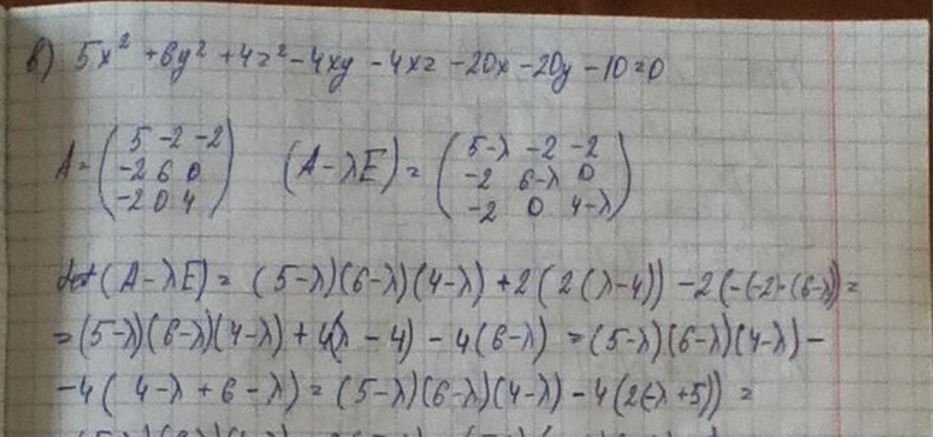 в) 5x² + 6y² + 4z² - 4xy - 4xz - 20x - 20y - 10 = 0
A = (5 -2 -2; -2 6 0; -2 0 4) (A - λE) = (5-λ -2 -2; -2 6-λ 0; -2 0 4-λ)
det (A - λE) = (5-λ)(6-λ)(4-λ) + 2(2(λ-4)) - 2(-(-2)·(6-λ)) =
= (5-λ)(6-λ)(4-λ) + 4(λ - 4) - 4(6-λ) = (5-λ)(6-λ)(4-λ) -
-4( 4-λ + 6 - λ) = (5-λ)(6-λ)(4-λ) - 4(2(-λ+5)) =